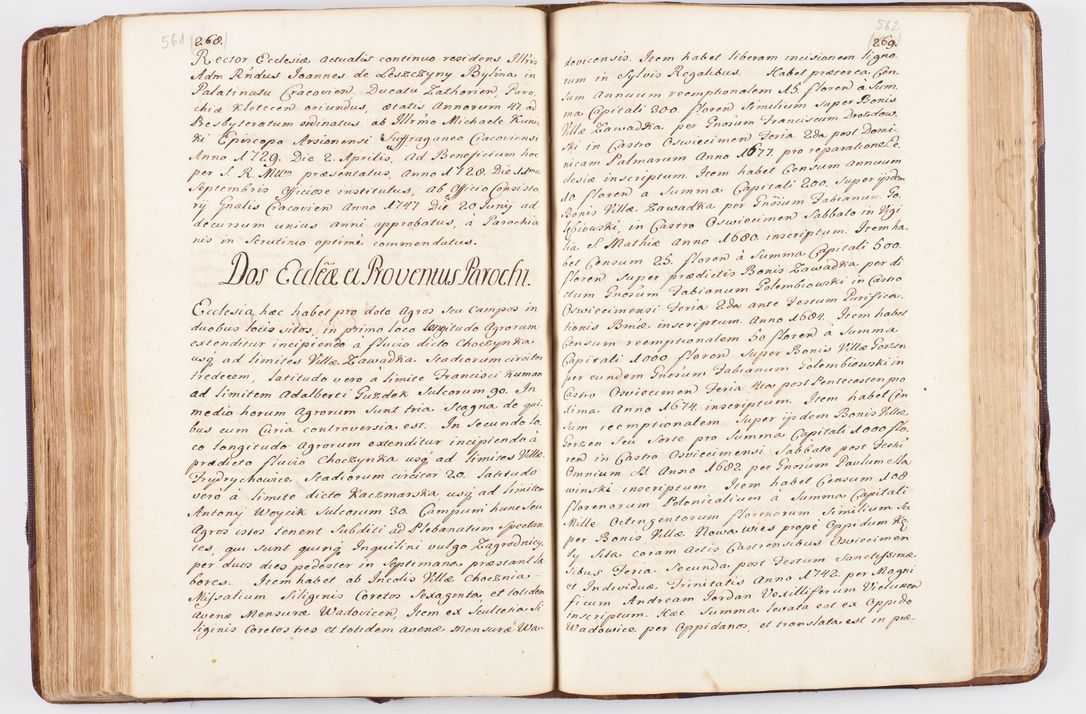 561
268.
Rector Ecclesiæ actualis continuo residens Illris
Adm Rndus Joannes de Leszczyny Bylina in
Palatinatu Cracovien Ducatu Zathorien, Paro-
chiæ Kletecen oriundus, ætatis Annorum 47. ad
Presbyteratum ordinatus ab Illrmo Michaele Kuni-
ki Episcopo Arsionensi Suffraganeo Cracoviensi
Anno 1729. Die 2. Aprilis, Ad Beneficium hoc
per S. R. Mttem præsentatus, Anno 1728. Die
Septembris Officiose institutus, ab Officio Consisto-
rij Gnalis Cracovien Anno 1747 Die 20 Junij ad
decursum unius anni approbatus, à Parochia-
nis in Scrutinio optime commendatus.
Dos Ecclæ et Proventus Parochi.
Ecclesia hæc habet pro dote Agros seu Campos in
duobus locis sitos, in primo loco longitudo Agrorum
extenditur incipiendo à fluvio dicto Choczynka
usq ad limites Villæ Zawadka Stadiorum circiter
tredecem, latitudo vero à limite Francisci Human
ad limitem Adalberti Guzdek Sulcorum 90. In
medio horum Agrorum Sunt tria Stagna de qui-
bus cum Curia controversia est. In Secundo lo-
co longitudo Agrorum extenditur incipiendo à
prædicto fluvio Choczynka usq ad limites Villæ
Frydrychowice Stadiorum circiter 20. latitudo
vero à limite dicto Kaczmarska, usq ad limitem
Antonij Woycik Sulcorum 30. Campum hunc seu
Agros istos tenent Subditi ad Plebanatum Spectan-
tes, qui sunt quinq Inquilini vulgo Zagrodnicy,
per duos dies pedester in Septimana præstant la-
bores. Item habet ab Incolis Villæ Chocznia
Missalium Siliginis Coretos Sexaginta, et totidem
avenæ Mensuræ Wadovicen, Item ex Scultetia Si-
liginis Coretos tres et totidem avenæ mensuræ Wa-
562
269.
dovicensis. Item habet liberam incisionem ligno-
rum in Sylvis Regalibus. Habet præterea Cen-
sum Annuum reemptionalem 15 floren à Sum-
ma Capitali 300. floren Similium Super Bonis
Villæ Zawadka per Gnosum Franciscum Drozdow-
ski in Castro Oswiecimen Feria 2da post Domi-
nicam Palmarum Anno 1677. pro reparatione Ec-
clesiæ inscriptum. Item habet Censum Annuum
10 floren à Summa Capitali 200. Super ijsdem
Bonis Villæ Zawadka per Gnosum Fabianum Go-
lębiowski, in Castro Oswiecimen Sabbato in Vigi-
lia S. Mathiæ Anno 1680. inscriptum. Item ha-
bet Censum 25. floren à Summa Capitali 500.
floren Super prædictis Bonis Zawadka per di-
ctum Gnosum Fabianum Golembiowski in Castro
Oswiecimensi Feria 2da ante Festum Purifica-
tionis Bmæ inscriptum Anno 1684. Item habet
Censum reemptionalem 50 floren à Summa
Capitali 1000 floren Super Bonis Villæ Gorzen
per eundem Gnosum Fabianum Golembiowski in
Castro Oswiecimen Feria 4ta post Pentecosten pro-
xima Anno 1674. inscriptum. Item habet Cen-
sum reemptionalem Super ijsdem Bonis Villæ
Gorzen Seu Sorte pro Summa Capitali 1000 flo-
ren in Castro Oswiecimensi Sabbato post Festū
Omnium SS. Anno 1682. per Gnosum Paulum Sła-
winski inscriptum. Item habet Censum 108
florenorum Polonicalium à Summa Capitali
Mille Octingentorum florenorum Similium Su-
per Bonis Villæ Nowa wies propè Oppidum Kę-
ty Sita coram Actis Castrensibus Oswiecimen-
sibus Feria Secunda post Festum Sanctissimæ
et Individuæ Trinitatis Anno 1742. per Magni-
ficum Andream Jordan Vexilliferum Vielunen
inscriptum. Hæc Summa levata est ex Oppido
Wadowice per Oppidanos, et translata est in præ-